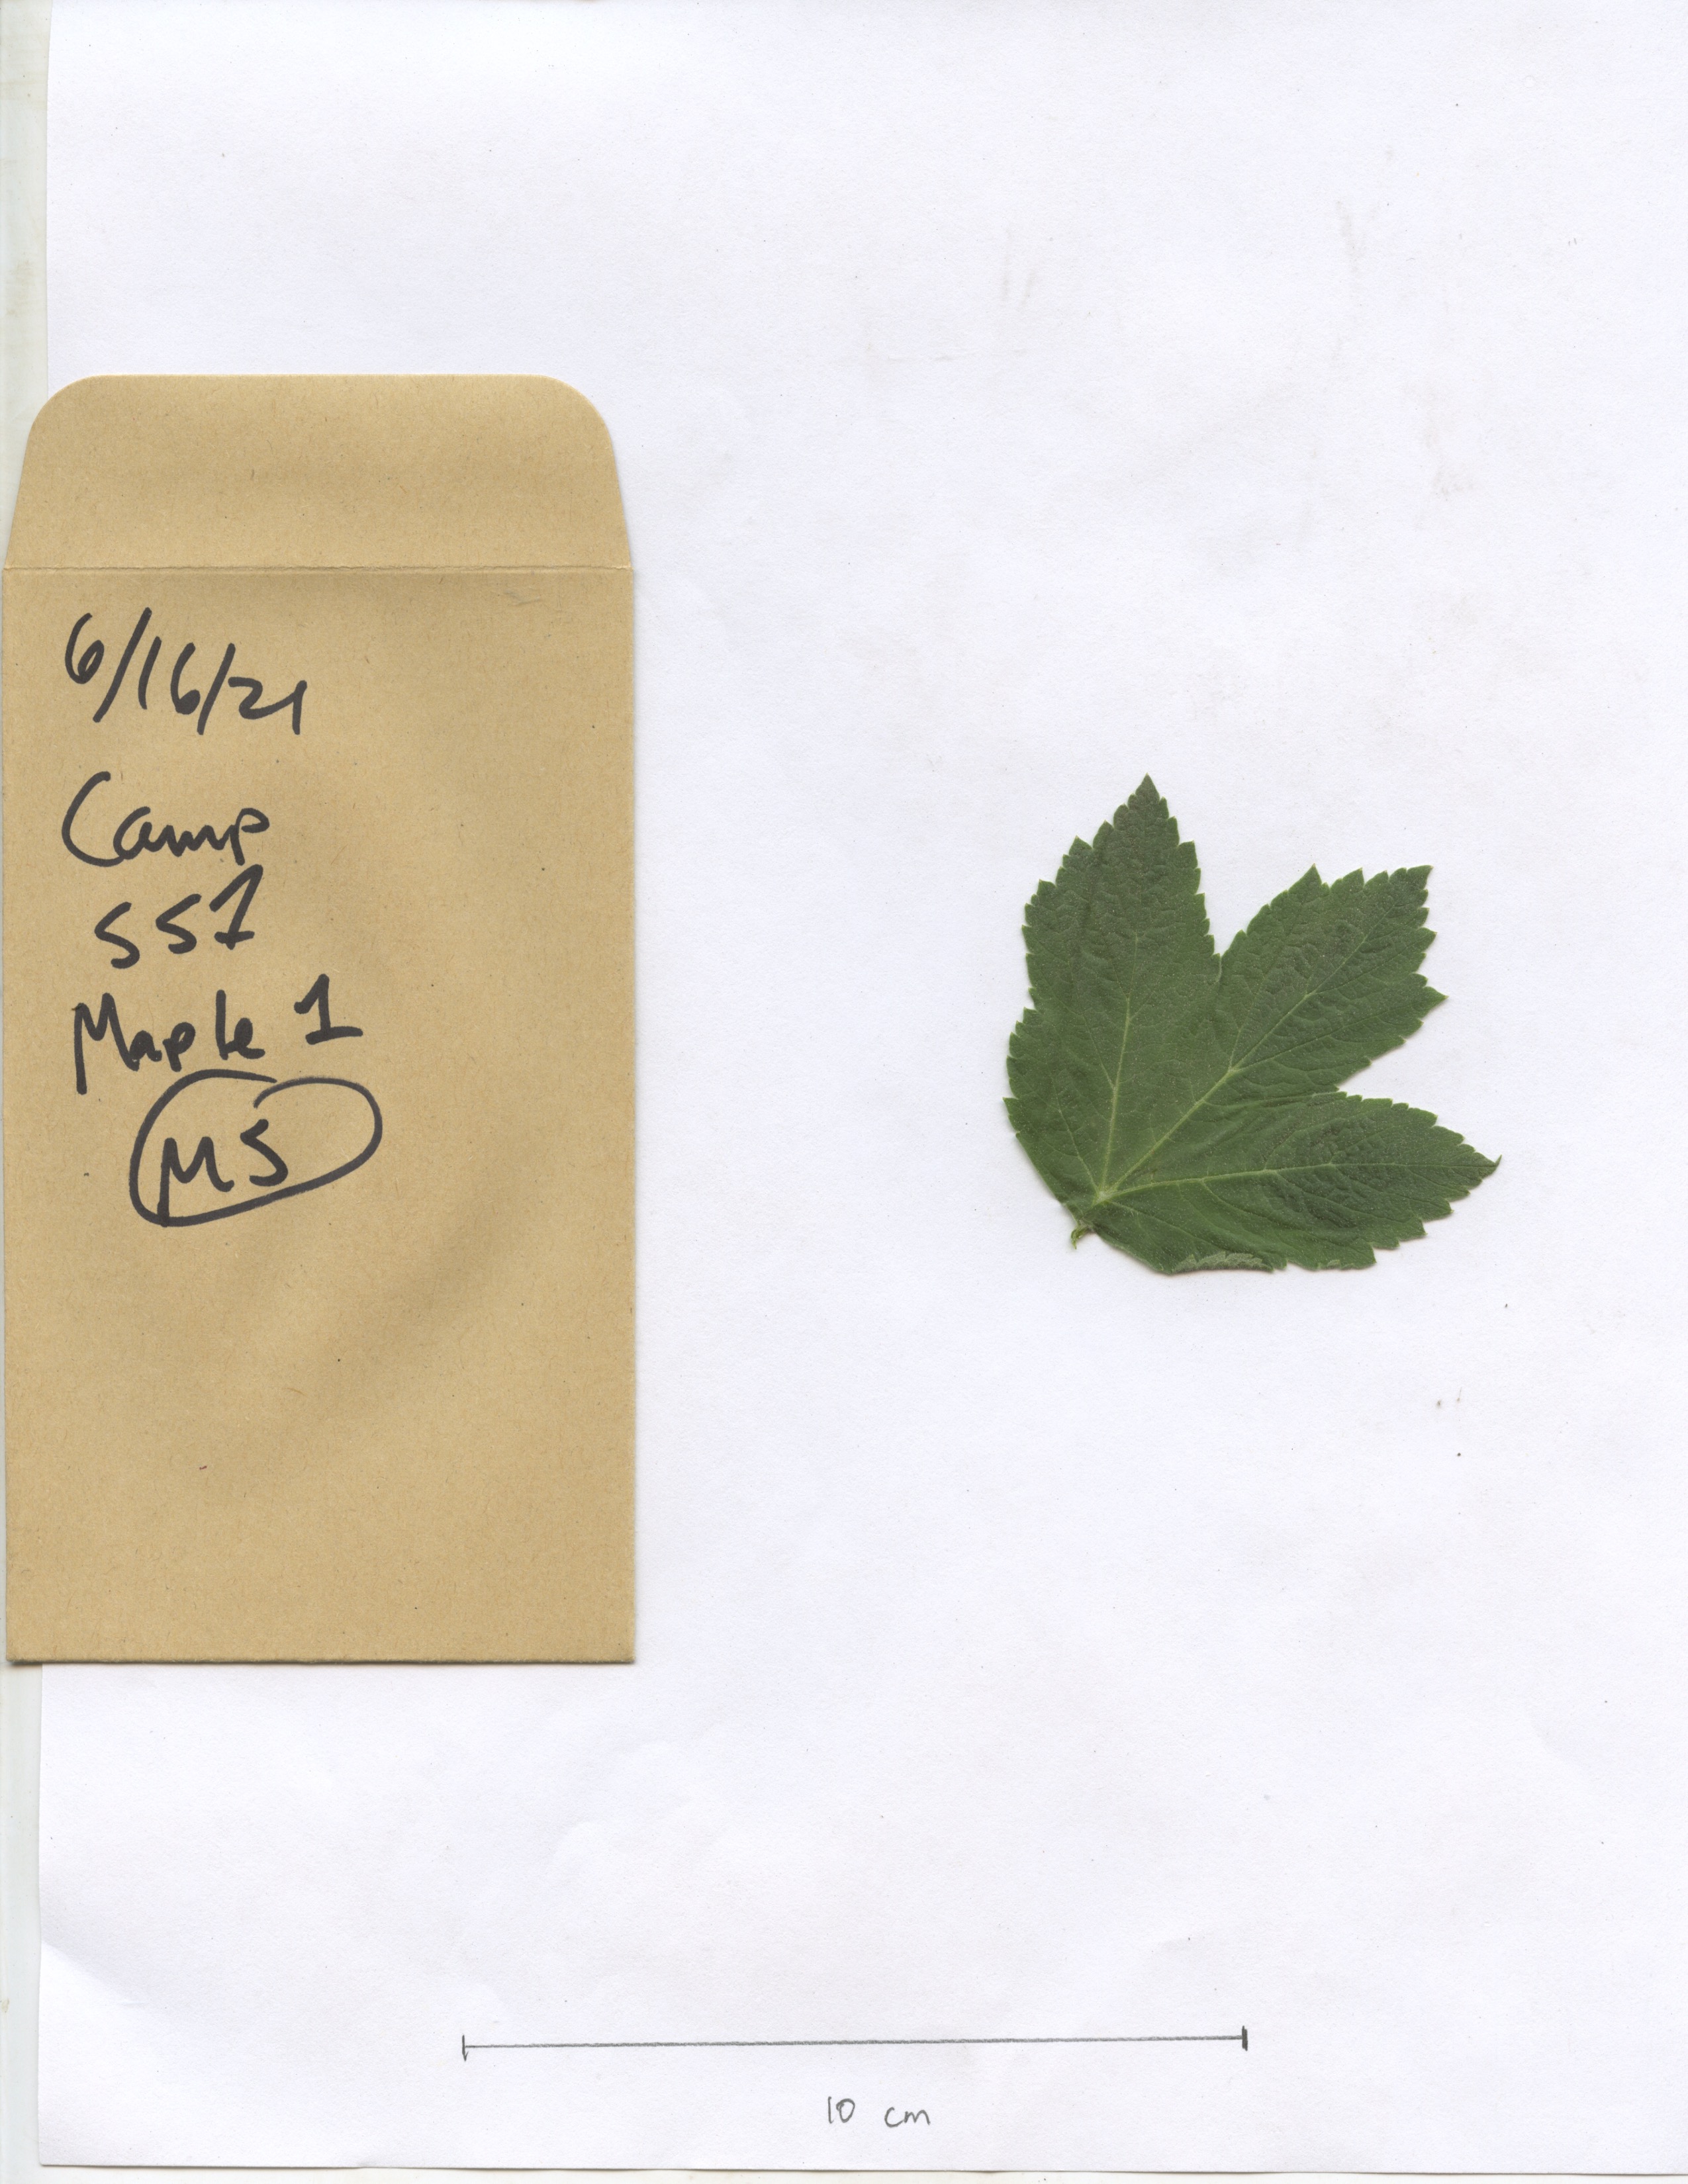 6/16/21
Camp
SS1
Maple 1
MS
10 cm